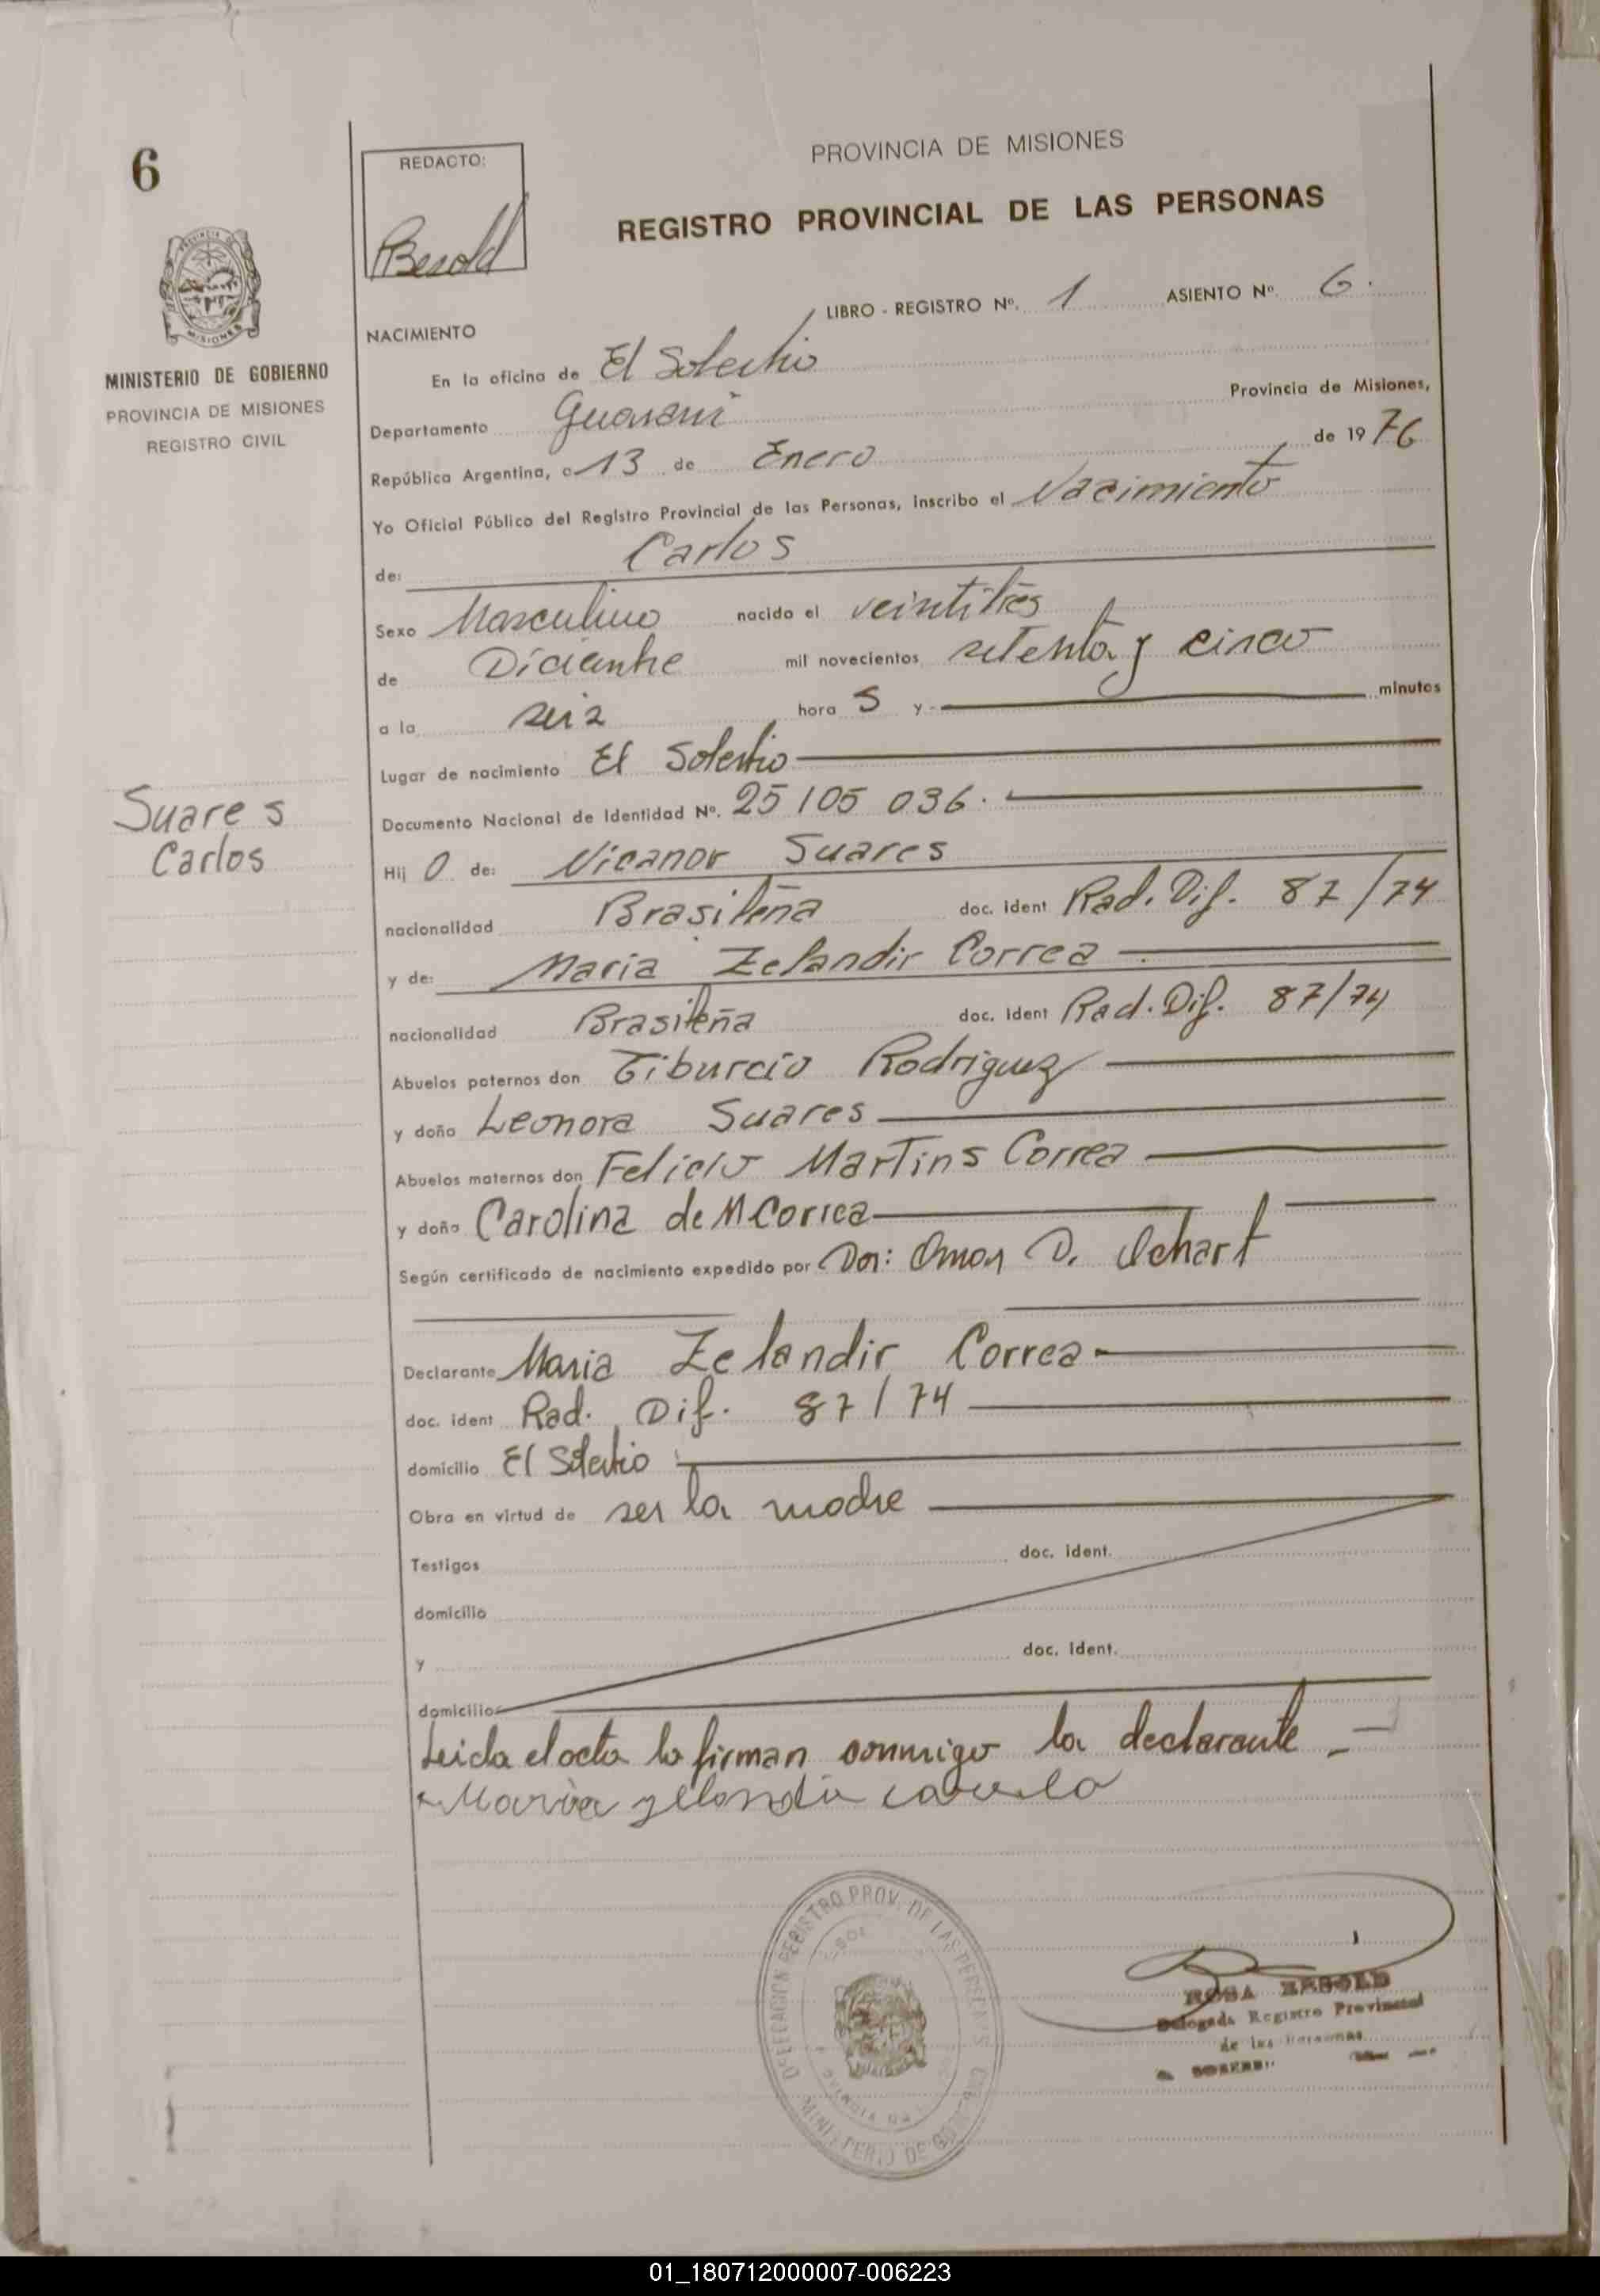 6
REDACTO:
Besold
PROVINCIA DE MISIONES
REGISTRO PROVINCIAL DE LAS PERSONAS
MINISTERIO DE GOBIERNO
PROVINCIA DE MISIONES
REGISTRO CIVIL
LIBRO - REGISTRO Nº. 1 ASIENTO Nº. 6.
NACIMIENTO
En la oficina de El Soberbio
Departamento Guarani Provincia de Misiones,
República Argentina, a 13 de Enero de 1976
Yo Oficial Público del Registro Provincial de las Personas, inscribo el Nacimiento
de: Carlos
Sexo Masculino nacido el veintitres
de Diciembre mil novecientos setenta y cinco
a la seis hora s y minutos
Lugar de nacimiento El Soberbio
Suares
Carlos
Documento Nacional de Identidad Nº. 25105 036.
Hij o de: Nicanor Suares
nacionalidad Brasileña doc. ident Rad. Dif. 87/74
y de: Maria Zelandir Correa
nacionalidad Brasileña doc. ident Rad. Dif. 87/74
Abuelos paternos don Tiburcio Rodriguez
y doña Leonora Suares
Abuelos maternos don Felicio Martins Correa
y doña Carolina de M Correa
Según certificado de nacimiento expedido por Dr: Omar D.
Declarante Maria Zelandir Correa
doc. ident Rad. Dif. 87/74
domicilio El Soberbio
Obra en virtud de ser la madre
Testigos doc. ident.
domicilio
y doc. ident.
domicilio
Leida el acta la firman conmigo la declarante
DELEGACION REGISTRO PROV. DE LAS PERSONAS
MINISTERIO DE GOBIERNO
ROSA BESOLD
Delegada Registro Provincial
de las Personas
01_180712000007-006223